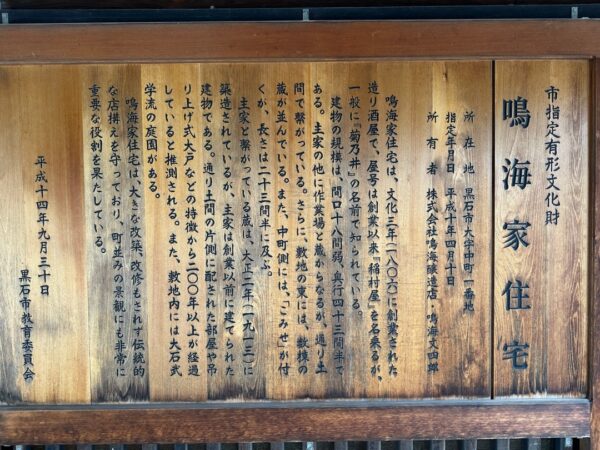 市指定有形文化財
鳴海家住宅
所在地 黒石市大字中町一番地
指定年月日 平成十年四月十日
所有者 株式会社鳴海醸造店 鳴海文四郎
鳴海家住宅は、文化三年(一八〇六)に創業された
造り酒屋で、屋号は創業以来『稲村屋』を名乗るが、
一般に『菊乃井』の名前で知られている。
建物の規模は、間口十八間弱、奥行四十三間半で
ある。主家の他に作業場と蔵からなるが、通り土
間で繋がっている。さらに、敷地の東には、数棟の
蔵が並んでいる。また、中町側には、「こみせ」が付
くが、長さは二十三間半に及ぶ。
主家と繋がっている蔵は、大正二年(一九一三)に
築造されているが、主家は創業以前に建てられた
建物である。通り土間の片側に配された部屋や吊
り上げ式大戸などの特徴から二〇〇年以上が経過
していると推測される。また、敷地内には大石武
学流の庭園がある。
鳴海家住宅は、大きな改築、改修もされず伝統的
な店構えを守っており、町並みの景観にも非常に
重要な役割を果たしている。
平成十四年九月三十日
黒石市教育委員会